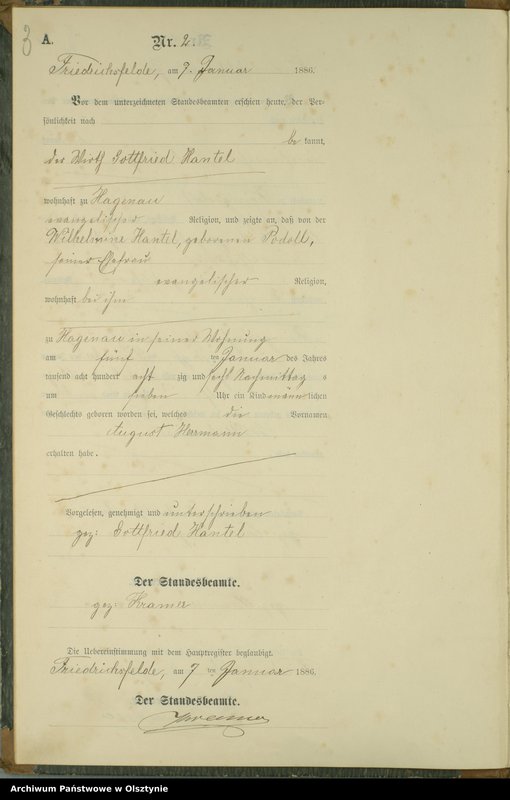 3
A.
Nr. 2.
Friedrichsfelde, am 7. Januar 1886.
Vor dem unterzeichneten Standesbeamten erschien heute, der Per-
sönlichkeit nach
be kannt,
der Wirth Gottfried Hantel
wohnhaft zu Hagenau
evangelischer Religion, und zeigte an, daß von der
Wilhelmine Hantel, geborenen Podoll,
seiner Ehefrau
evangelischer Religion,
wohnhaft bei ihm
zu Hagenau in seiner Wohnung
am fünf ten Januar des Jahres
tausend acht hundert acht zig und sechs Nachmittag s
um sieben Uhr ein Kind männ lichen
Geschlechts geboren worden sei, welches die Vornamen
August Herrmann
erhalten habe.
Vorgelesen, genehmigt und unterschrieben
gez: Gottfried Hantel
Der Standesbeamte.
gez: Kramer
Die Uebereinstimmung mit dem Hauptregister beglaubigt.
Friedrichsfelde, am 7 ten Januar 1886.
Der Standesbeamte.
Kramer
Archiwum Państwowe w Olsztynie